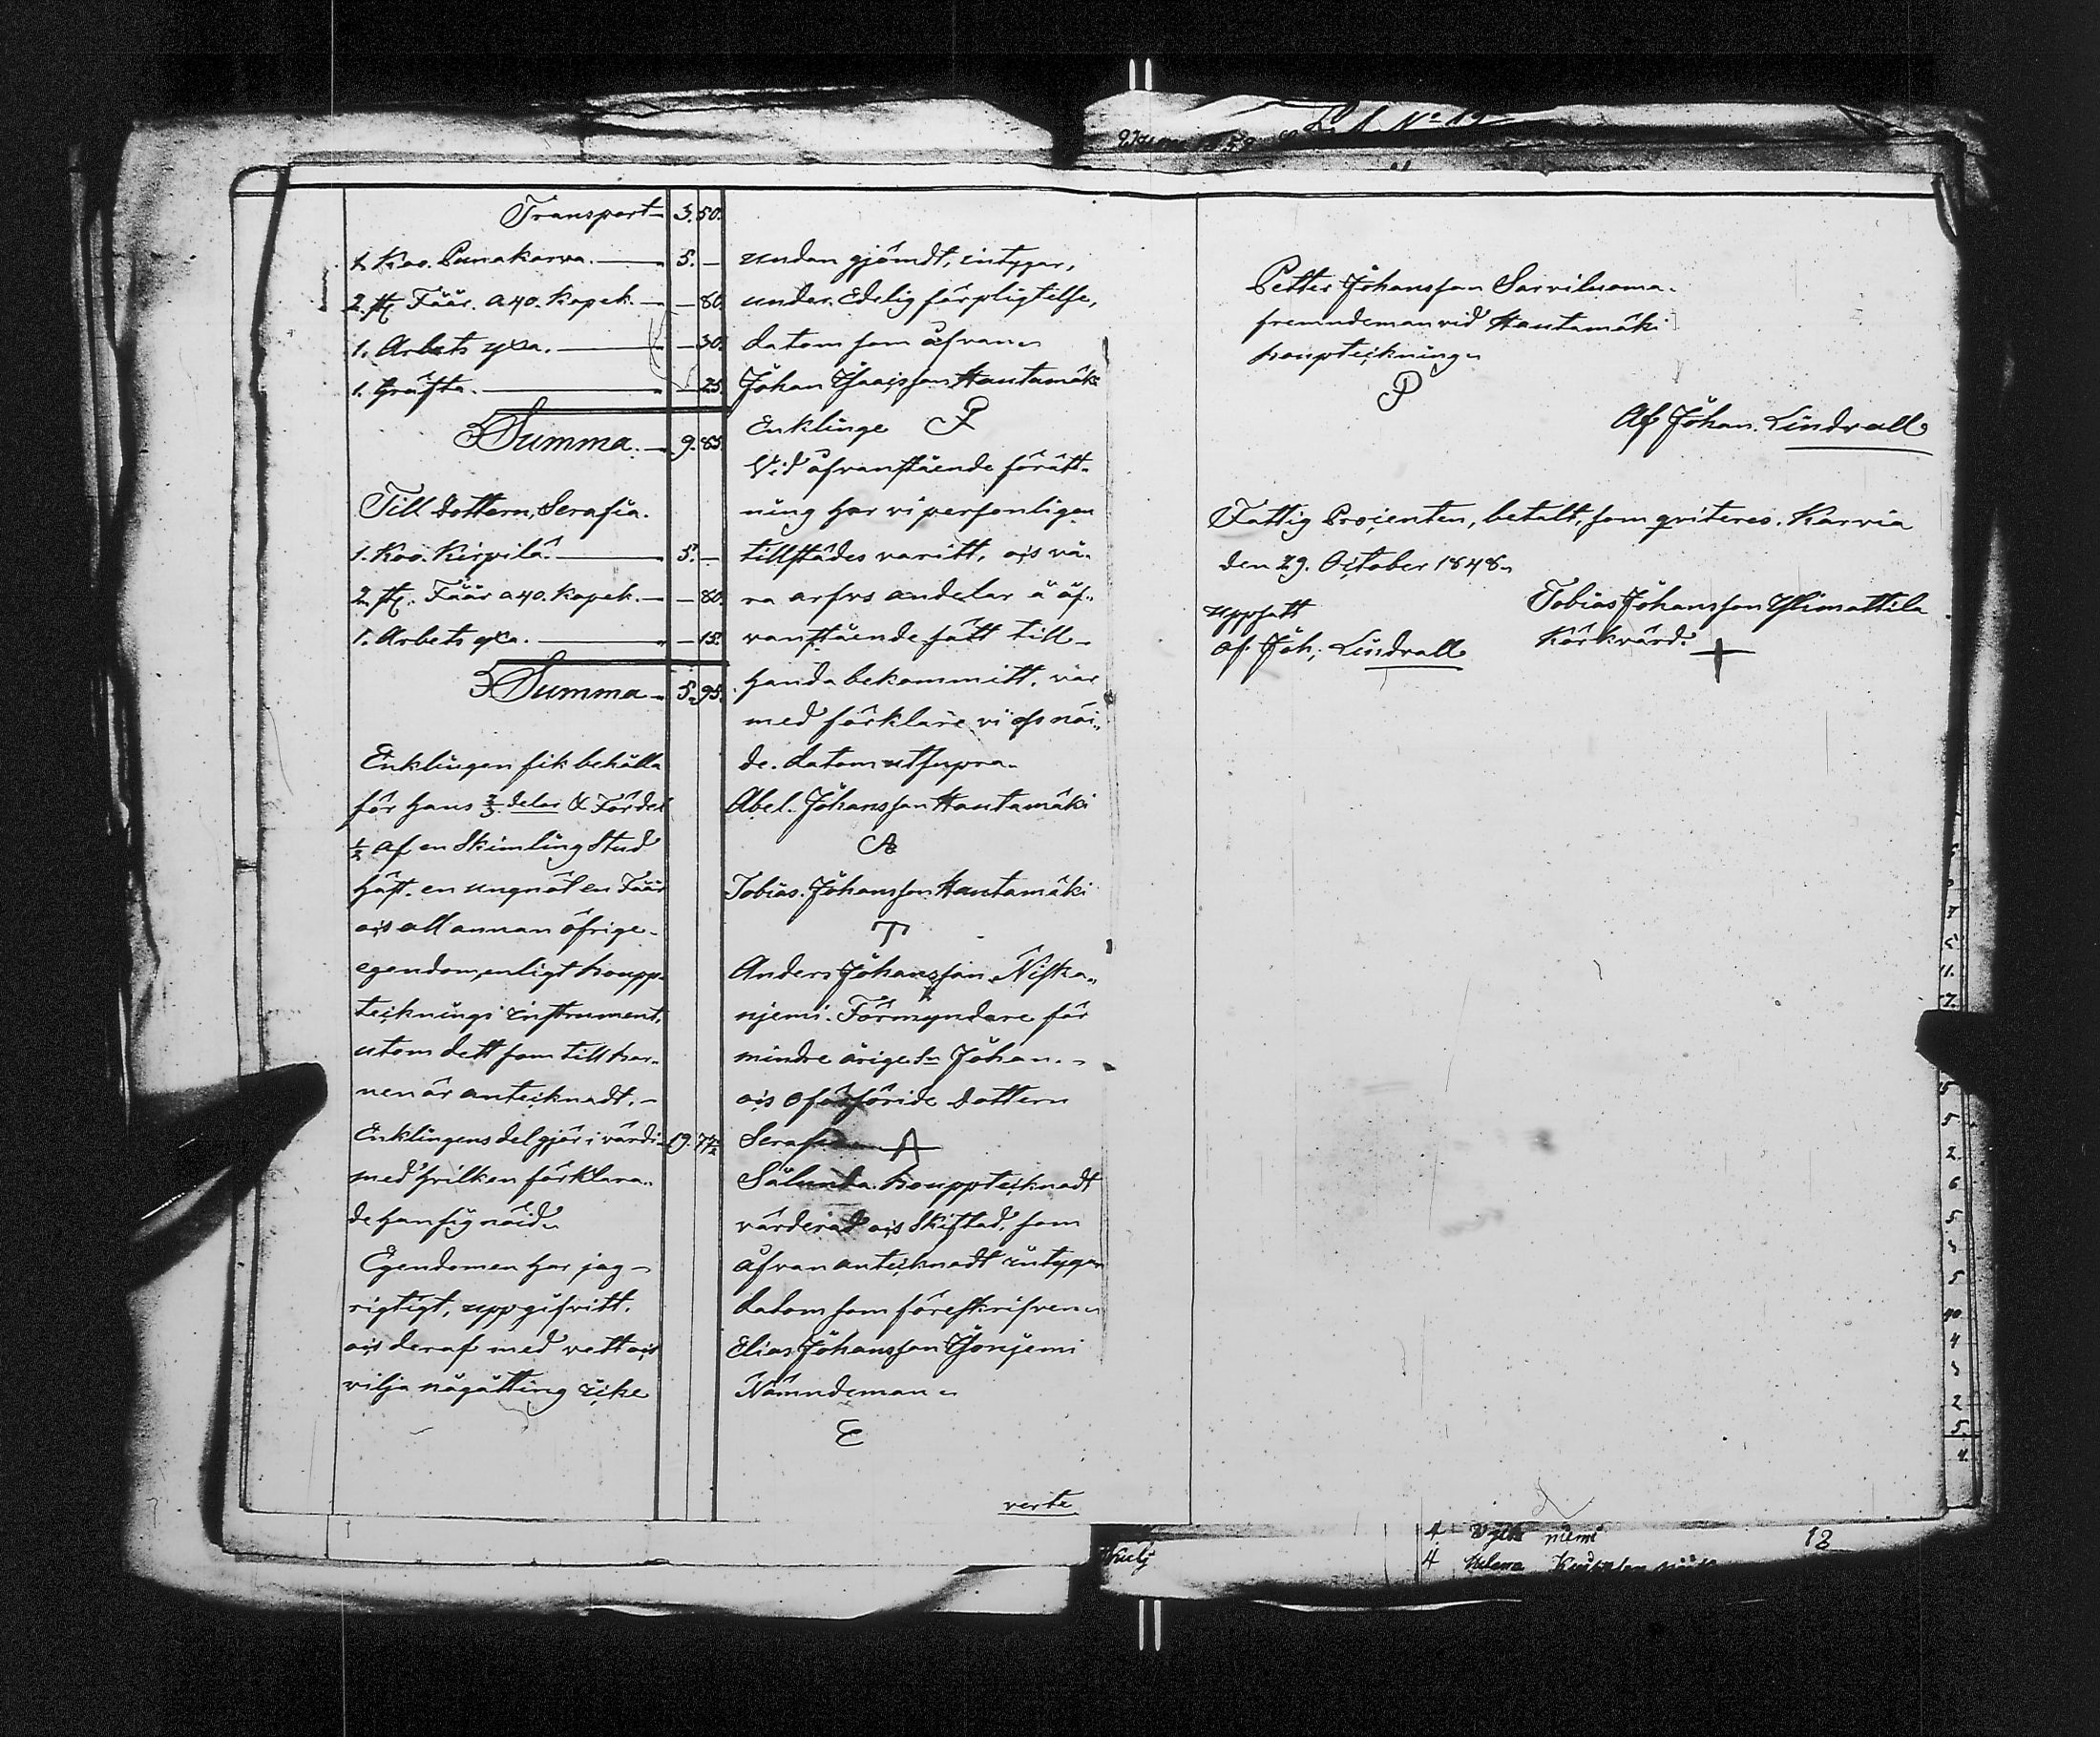 Transport 3. 50.
1. Koo. Punakarva. 5. —
2. st. Fåår. a 40. Kopek. — 80.
1. Arbets yxa. — 30.
1. Gräfta. — 25.
Summa. 9. 85.
Till dottern, Serafia.
1. Koo. Kirpilä. 5. —
2. st. Fåår a 40. Kopek. — 80.
1. Arbets yxa. — 15.
Summa 5. 95.
Enklingen fik behålla
för hans 2/3 delar & Fördel
1/2 af en Skimling Stud
häst. en ungnöt en Fåår
ocs all annan öfrige
egendom, enligt boupp-
teckningsinstrument,
utom dett som till bar-
nen är antecknadt. —
Enklingens del gjör i värdi 19. 77 1/2
med hvilken förklara-
de han sig nöid.
Egendomen har jag
rigtigt, uppgifvitt.
ocs deraf med vett ocs
vilja någåtting icke
undan gjömdt, intygar,
under Edelig förpligtelse,
datom som åfvan
Johan Isacsson Hautamäki
Enklinge P
Vid åfvanstående förätt-
ning har vi personligen
tillstädes varitt, ocs vå-
ra arfvs andelar å åf-
vanstående sätt till-
handa bekommitt. var
med förklare vi oss nöi-
de. datom utsupra.
Abel. Johansson Hautamäki
A
Tobias. Johansson Hautamäki
T
Anders Johansson Niska-
njemi. Förmyndare för
mindre årige Sn Johan.
ocs oförsöride dottern
Serafia A
Sålunda bouppteeknadt
värderad ocs Skiftad, som
åfvan antecknadt intygar
datom som föreskrifven
Elias Johansson
Nämndeman
E
verte
Petter Johansson Sarviluoma.
fremndeman vid Hautamäki
boupteckning
P
Af Johan. Lindvall
Fattig Procenten, betalt, som qviteres. Karvia
den 29. October 1848.
Tobias Johansson Ylimattila
Körkvärd.
uppsatt
af. Joh; Lindvall
No 19
4 niemi
4 Helena
12